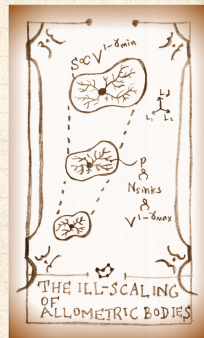 S∝V^1-γmin
L₃
L₁ L₂
P
Nsinks
V^1-γmax
THE ILL-SCALING
OF
ALLOMETRIC BODIES